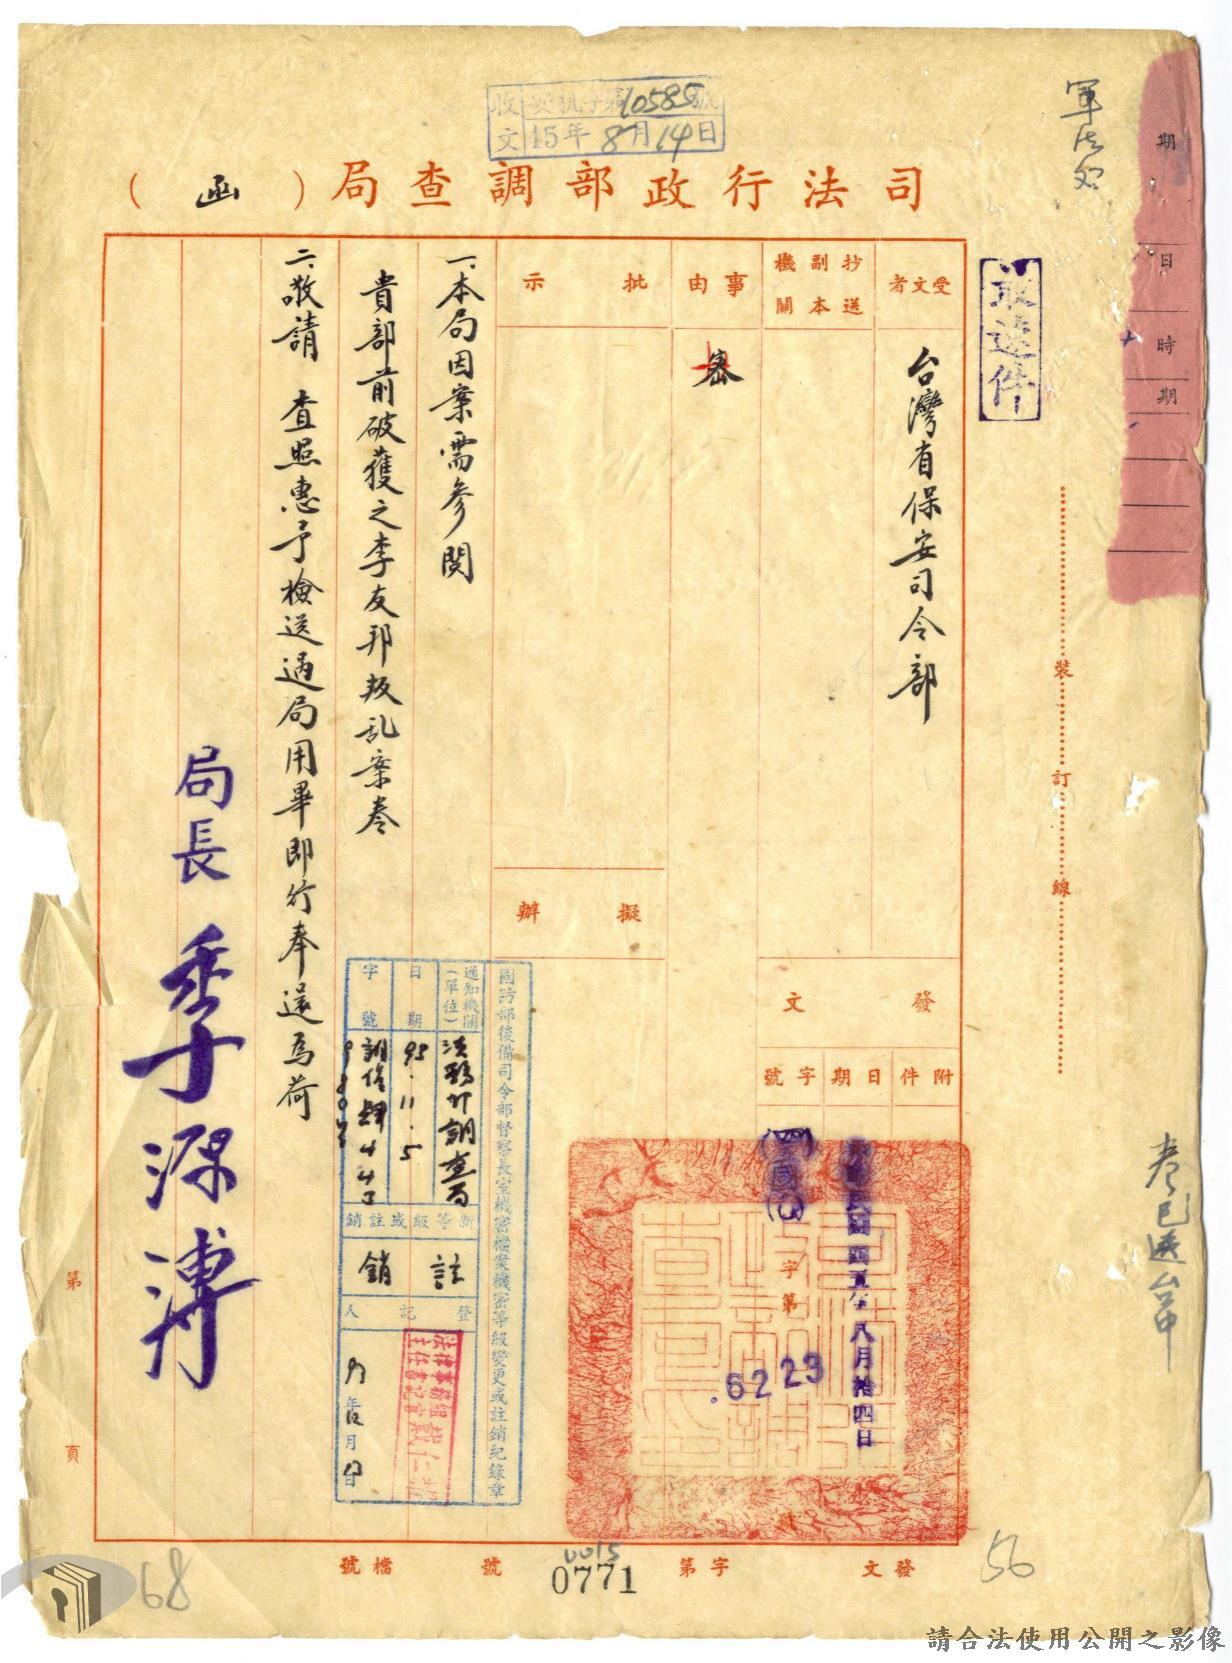 收文 安机字第10585號
45年8月14日
司法行政部調查局（函）
軍法処
最速件
期
日
時
期
受文者
台灣省保安司令部
抄送副本機關
事由
密
批示
擬辦
發文
附件
日期
字號
中華民國四五年八月拾四日
(四五)
字第
6223
號
一、本局因案需參閱
貴部前破獲之李友邦叛乱案卷
二、敬請 查照惠予檢送過局用畢即行奉還為荷
局長 季源溥
國防部後備司令部督察長室機密檔案機密等級變更或註銷紀錄章
通知機關(單位)
法務部調查局
日期
95.11.5
字號
新等級或註銷
註銷
登記人
法律事務組
主任書記官 戴仁
年 月 日
裝訂線
卷已送台中
第
頁
發文
字第
0015
0771
號
檔號
56
68
請合法使用公開之影像